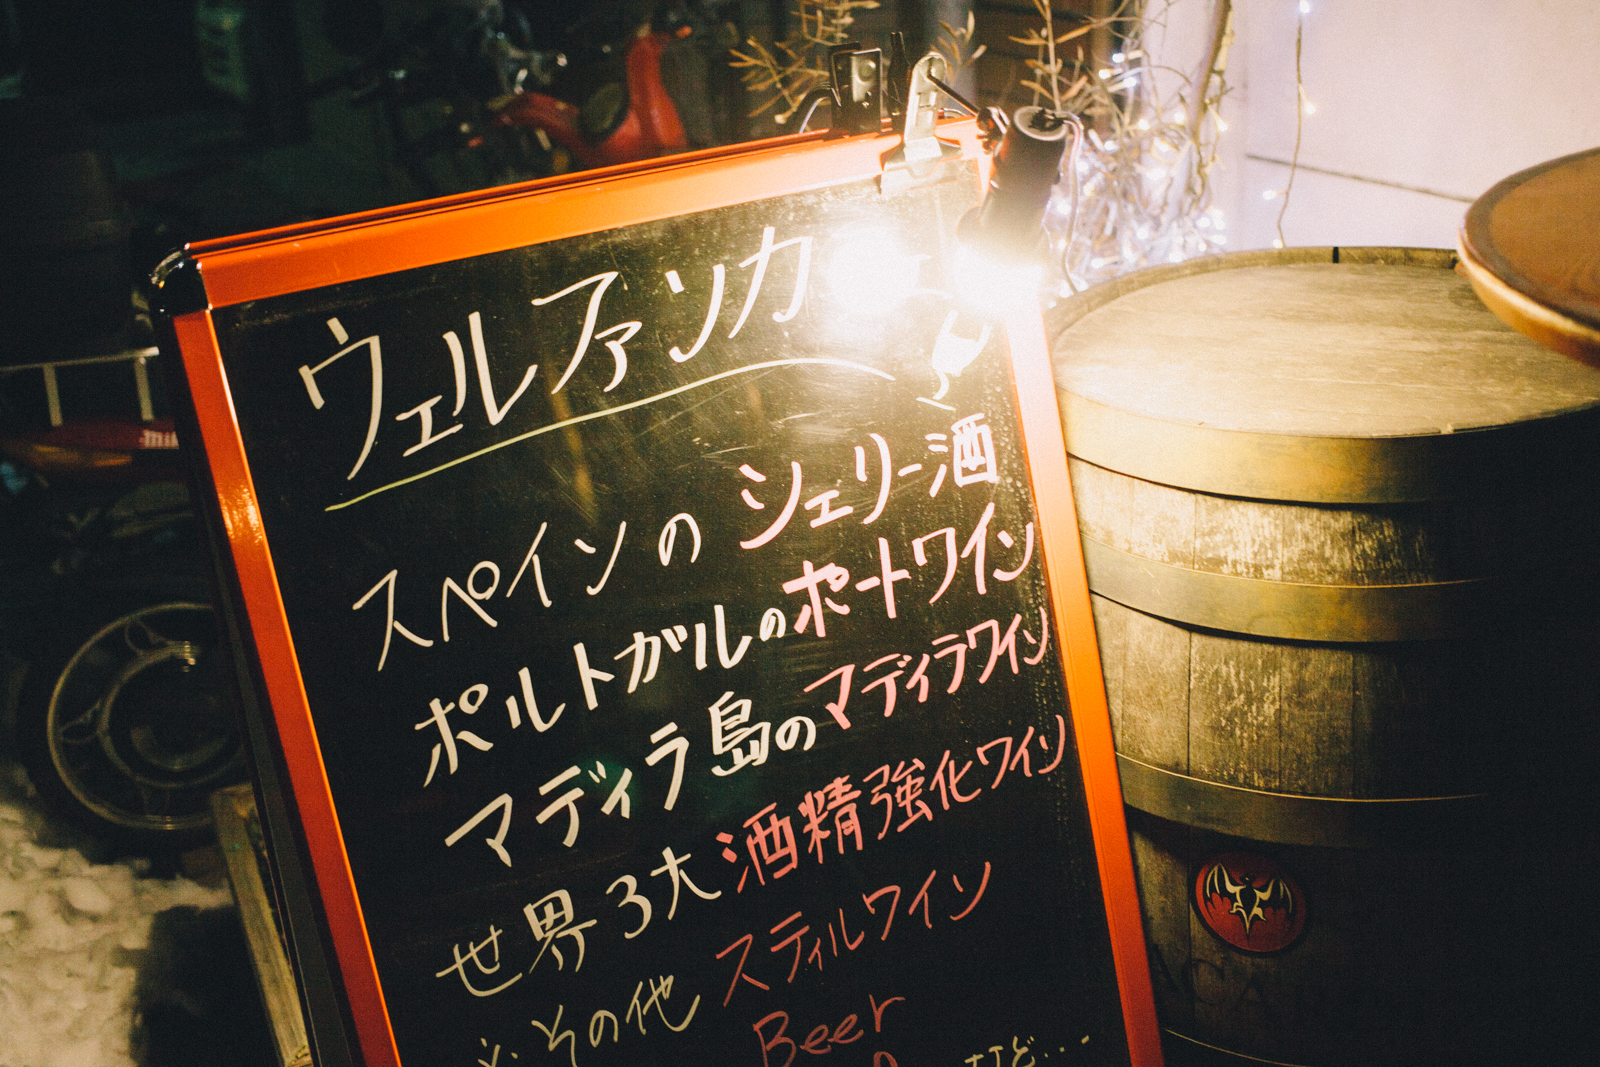 ウェルファンカ
スペインの シェリー酒
ポルトガルのポートワイン
マディラ島のマディラワイン
世界3大酒精強化ワイン
※その他 スティルワイン
Beer
など...